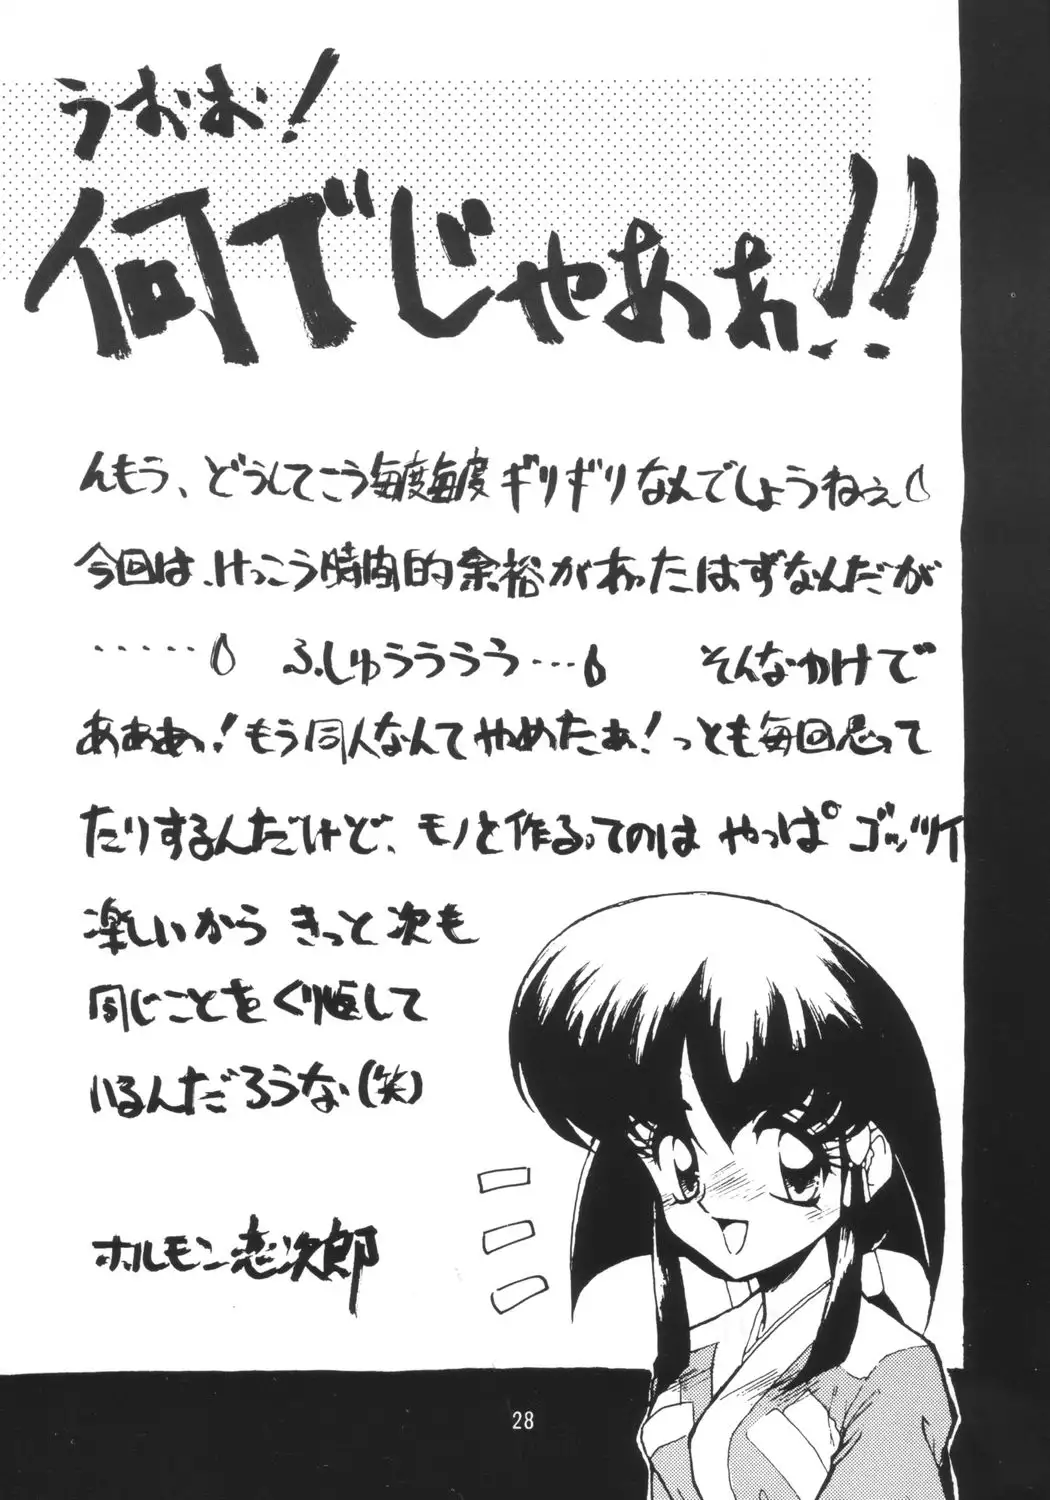 うおお!
何でじゃあぁ!!
んもう、どうしてこう毎度毎度ギリギリなんでしょうねぇ
今回は、けっこう時間的余裕があったはずなんだが
……ふしゅうううう… そんなわけで
あああっ!もう同人なんてやめたぁ!っとも毎回思って
たりするんだけど、モノと作るってのは やっぱ ゴッツイ
楽しいから きっと次も
同じことをくり返して
いるんだろうな(笑)
ホルモン恋次郎
28